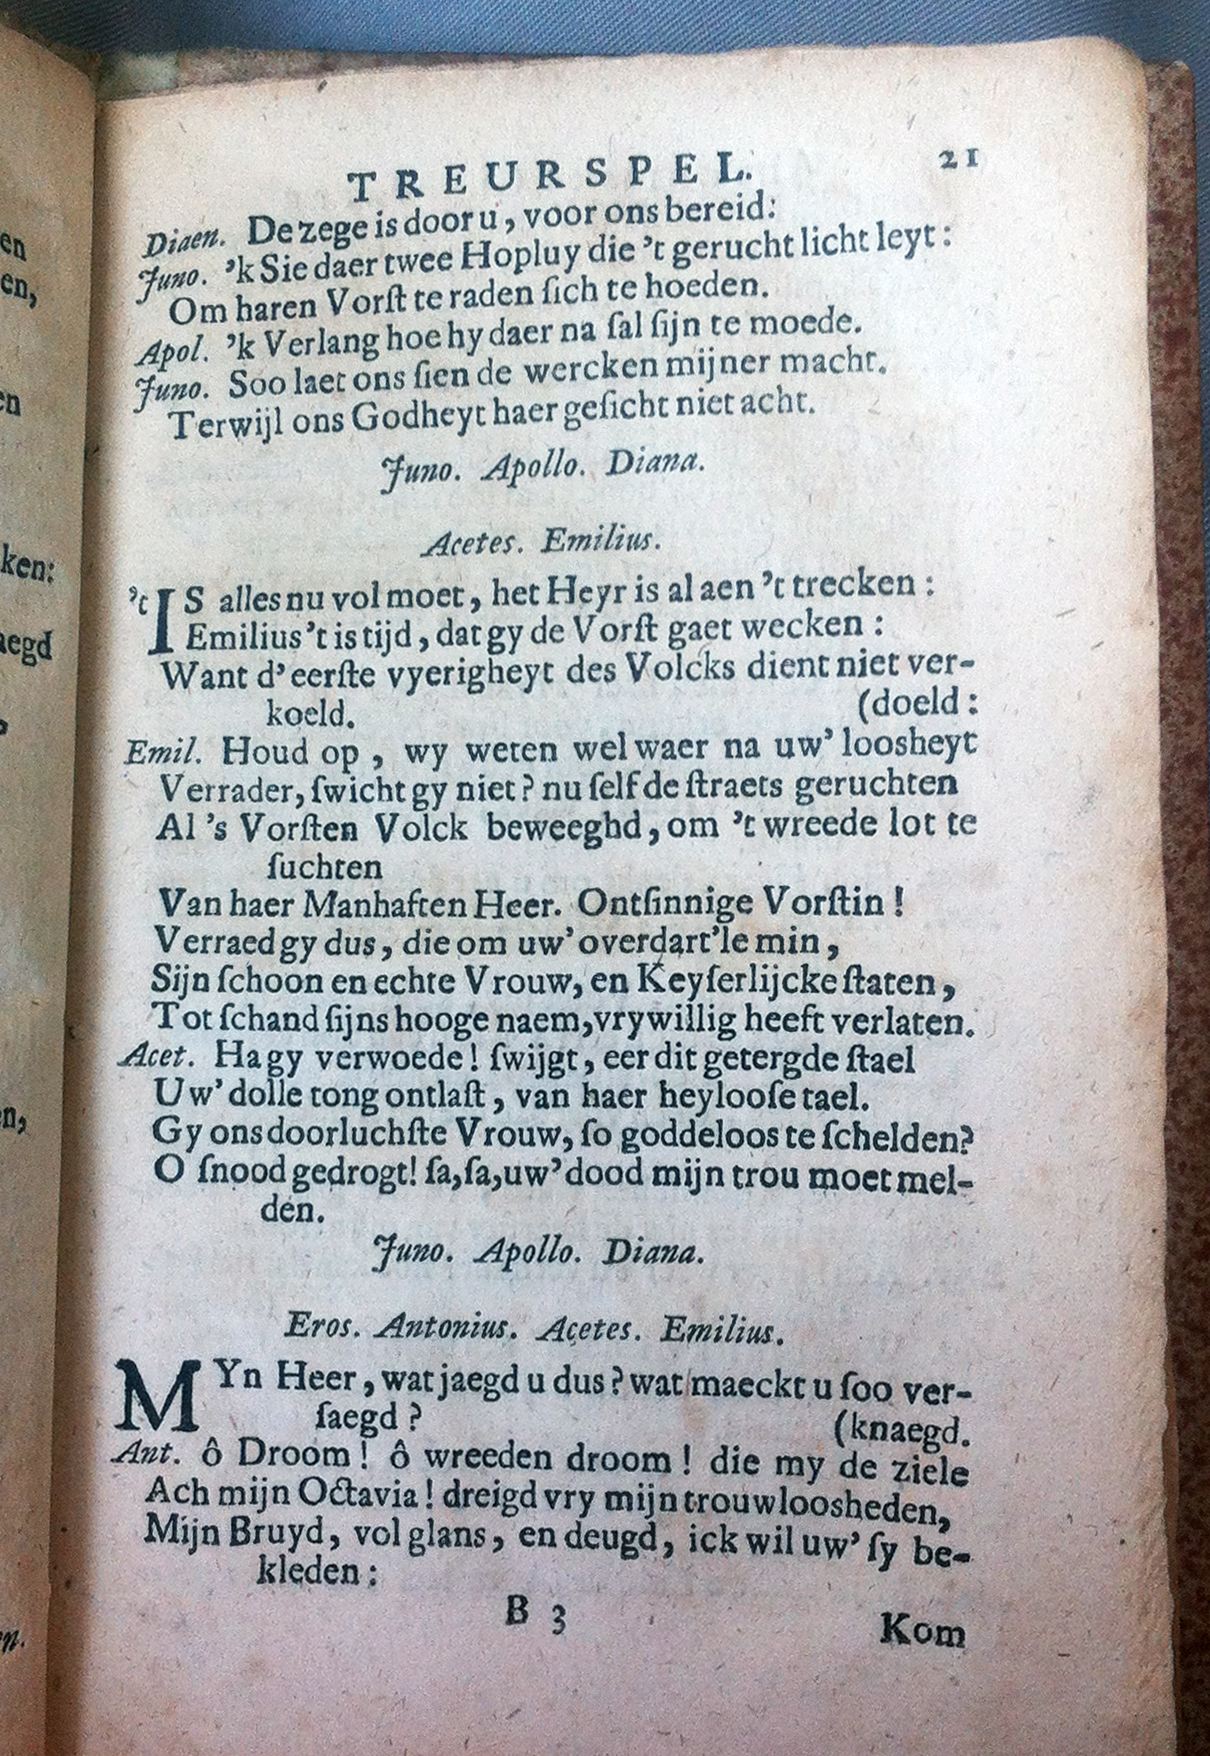 TREURSPEL. 21
Diaen. De zege is door u, voor ons bereid:
Juno. 'k Sie daer twee Hopluy die 't gerucht licht leyt:
Om haren Vorſt te raden ſich te hoeden.
Apol. 'k Verlang hoe hy daer na ſal ſijn te moede.
Juno. Soo laet ons ſien de wercken mijner macht.
Terwijl ons Godheyt haer geſicht niet acht.
Juno. Apollo. Diana.
Acetes. Emilius.
't IS alles nu vol moet, het Heyr is al aen 't trecken:
Emilius 't is tijd, dat gy de Vorſt gaet wecken:
Want d'eerſte vyerigheyt des Volcks dient niet ver-
koeld. (doeld:
Emil. Houd op, wy weten wel waer na uw' loosheyt
Verrader, ſwicht gy niet? nu ſelf de ſtraets geruchten
Al 's Vorſten Volck beweeghd, om 't wreede lot te
ſuchten
Van haer Manhaften Heer. Ontſinnige Vorſtin!
Verraed gy dus, die om uw' overdart'le min,
Sijn ſchoon en echte Vrouw, en Keyſerlijcke ſtaten,
Tot ſchand ſijns hooge naem, vrywillig heeft verlaten.
Acet. Ha gy verwoede! ſwijgt, eer dit getergde ſtael
Uw' dolle tong ontlaſt, van haer heylooſe tael.
Gy ons doorluchſte Vrouw, ſo goddeloos te ſchelden?
O ſnood gedrogt! ſa, ſa, uw' dood mijn trou moet mel-
den.
Juno. Apollo. Diana.
Eros. Antonius. Acetes. Emilius.
MYn Heer, wat jaegd u dus? wat maeckt u ſoo ver-
ſaegd? (knaegd.
Ant. ô Droom! ô wreeden droom! die my de ziele
Ach mijn Octavia! dreigd vry mijn trouwloosheden,
Mijn Bruyd, vol glans, en deugd, ick wil uw' ſy be-
kleden:
B 3 Kom
en
en,
en
ken:
aegd
en,
en.